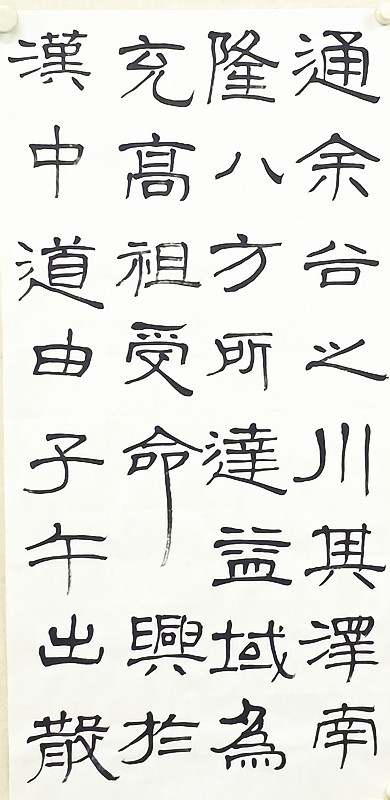 通余谷之川其澤南
隆八方所達益域為
充高祖受命興於
漢中道由子午出散